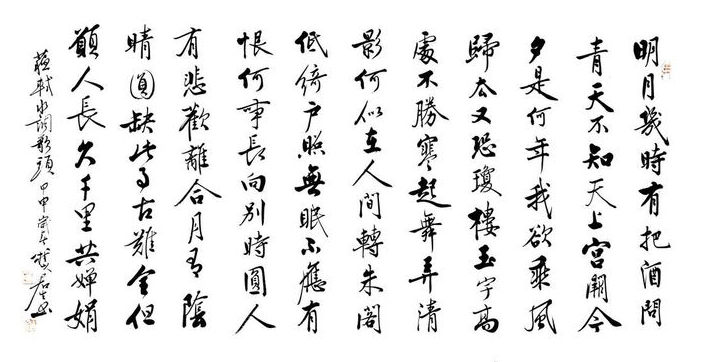 明月幾時有把酒問
青天不知天上宮闕今
夕是何年我欲乘風
歸去又恐瓊樓玉宇高
處不勝寒起舞弄清
影何似在人間轉朱閣
低綺戶照無眠不應有
恨何事長向別時圓人
有悲歡離合月有陰
晴圓缺此事古難全但
願人長久千里共嬋娟
蘇軾水調歌頭甲申歲